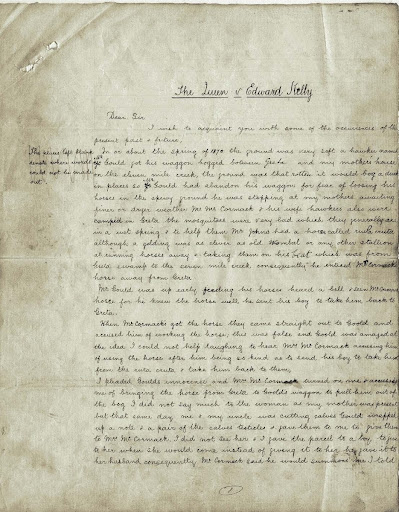 The Queen v Edward Kelly
Dear Sir
I wish to acquaint you with some of the occurrences of the
present past & future.
The places left blank
denote where words
could not be made
out.
In or about the spring of 1870 the ground was very soft a hawker named
Mr Gould got his waggon bogged between Greta and my mothers house
on the eleven mile creek, the ground was that rotten it would bog a duck
in places so Mr Gould had abandon his waggon for fear of loosing his
horses in the spewy ground he was stopping at my mothers awaiting
finer or dryer weather Mr McCormack & his wife hawkers also were
camped in Greta the mosquitoes were very bad which they generally are
in a wet spring & to help them Mr Johns had a horse called ruita cruta
although a gelding was as clever as old Wombat or any other stallion
at running horses away & taking them on his beat which was from
Greta swamp to the seven mile creek consequently he enticed McCormacks
horse away from Greta.
Mr Gould was up early feeding his horses heard a bell & seen McCormacks
horse for he knew the horse well he sent his boy to take him back to
Greta.
When McCormacks got the horse they came straight out to Goold and
accused him of working the horse; this was false and Goold was amazed at
the idea I could not help laughing to hear Mrs McCormack accusing him
of using the horse after him being so kind as to send his boy to take him
from the ruta cruta & take him back to them.
I pleaded Goulds innocence and Mrs McCormack turned on me & accused
me of bringing the horse from Greta to Goolds waggon to pull him out of
the bog I did not say much to the woman as my mother was present
but that same day me & my uncle was cutting calves Gould wrapped
up a note & a pair of the calves testicles & gave them to me to give them
to Mrs McCormack. I did not see her & I gave the parcel to a boy to give
to her when she would come instead of giving it to her he gave it to
her husband consequently McCormack said he would summons me I told
1